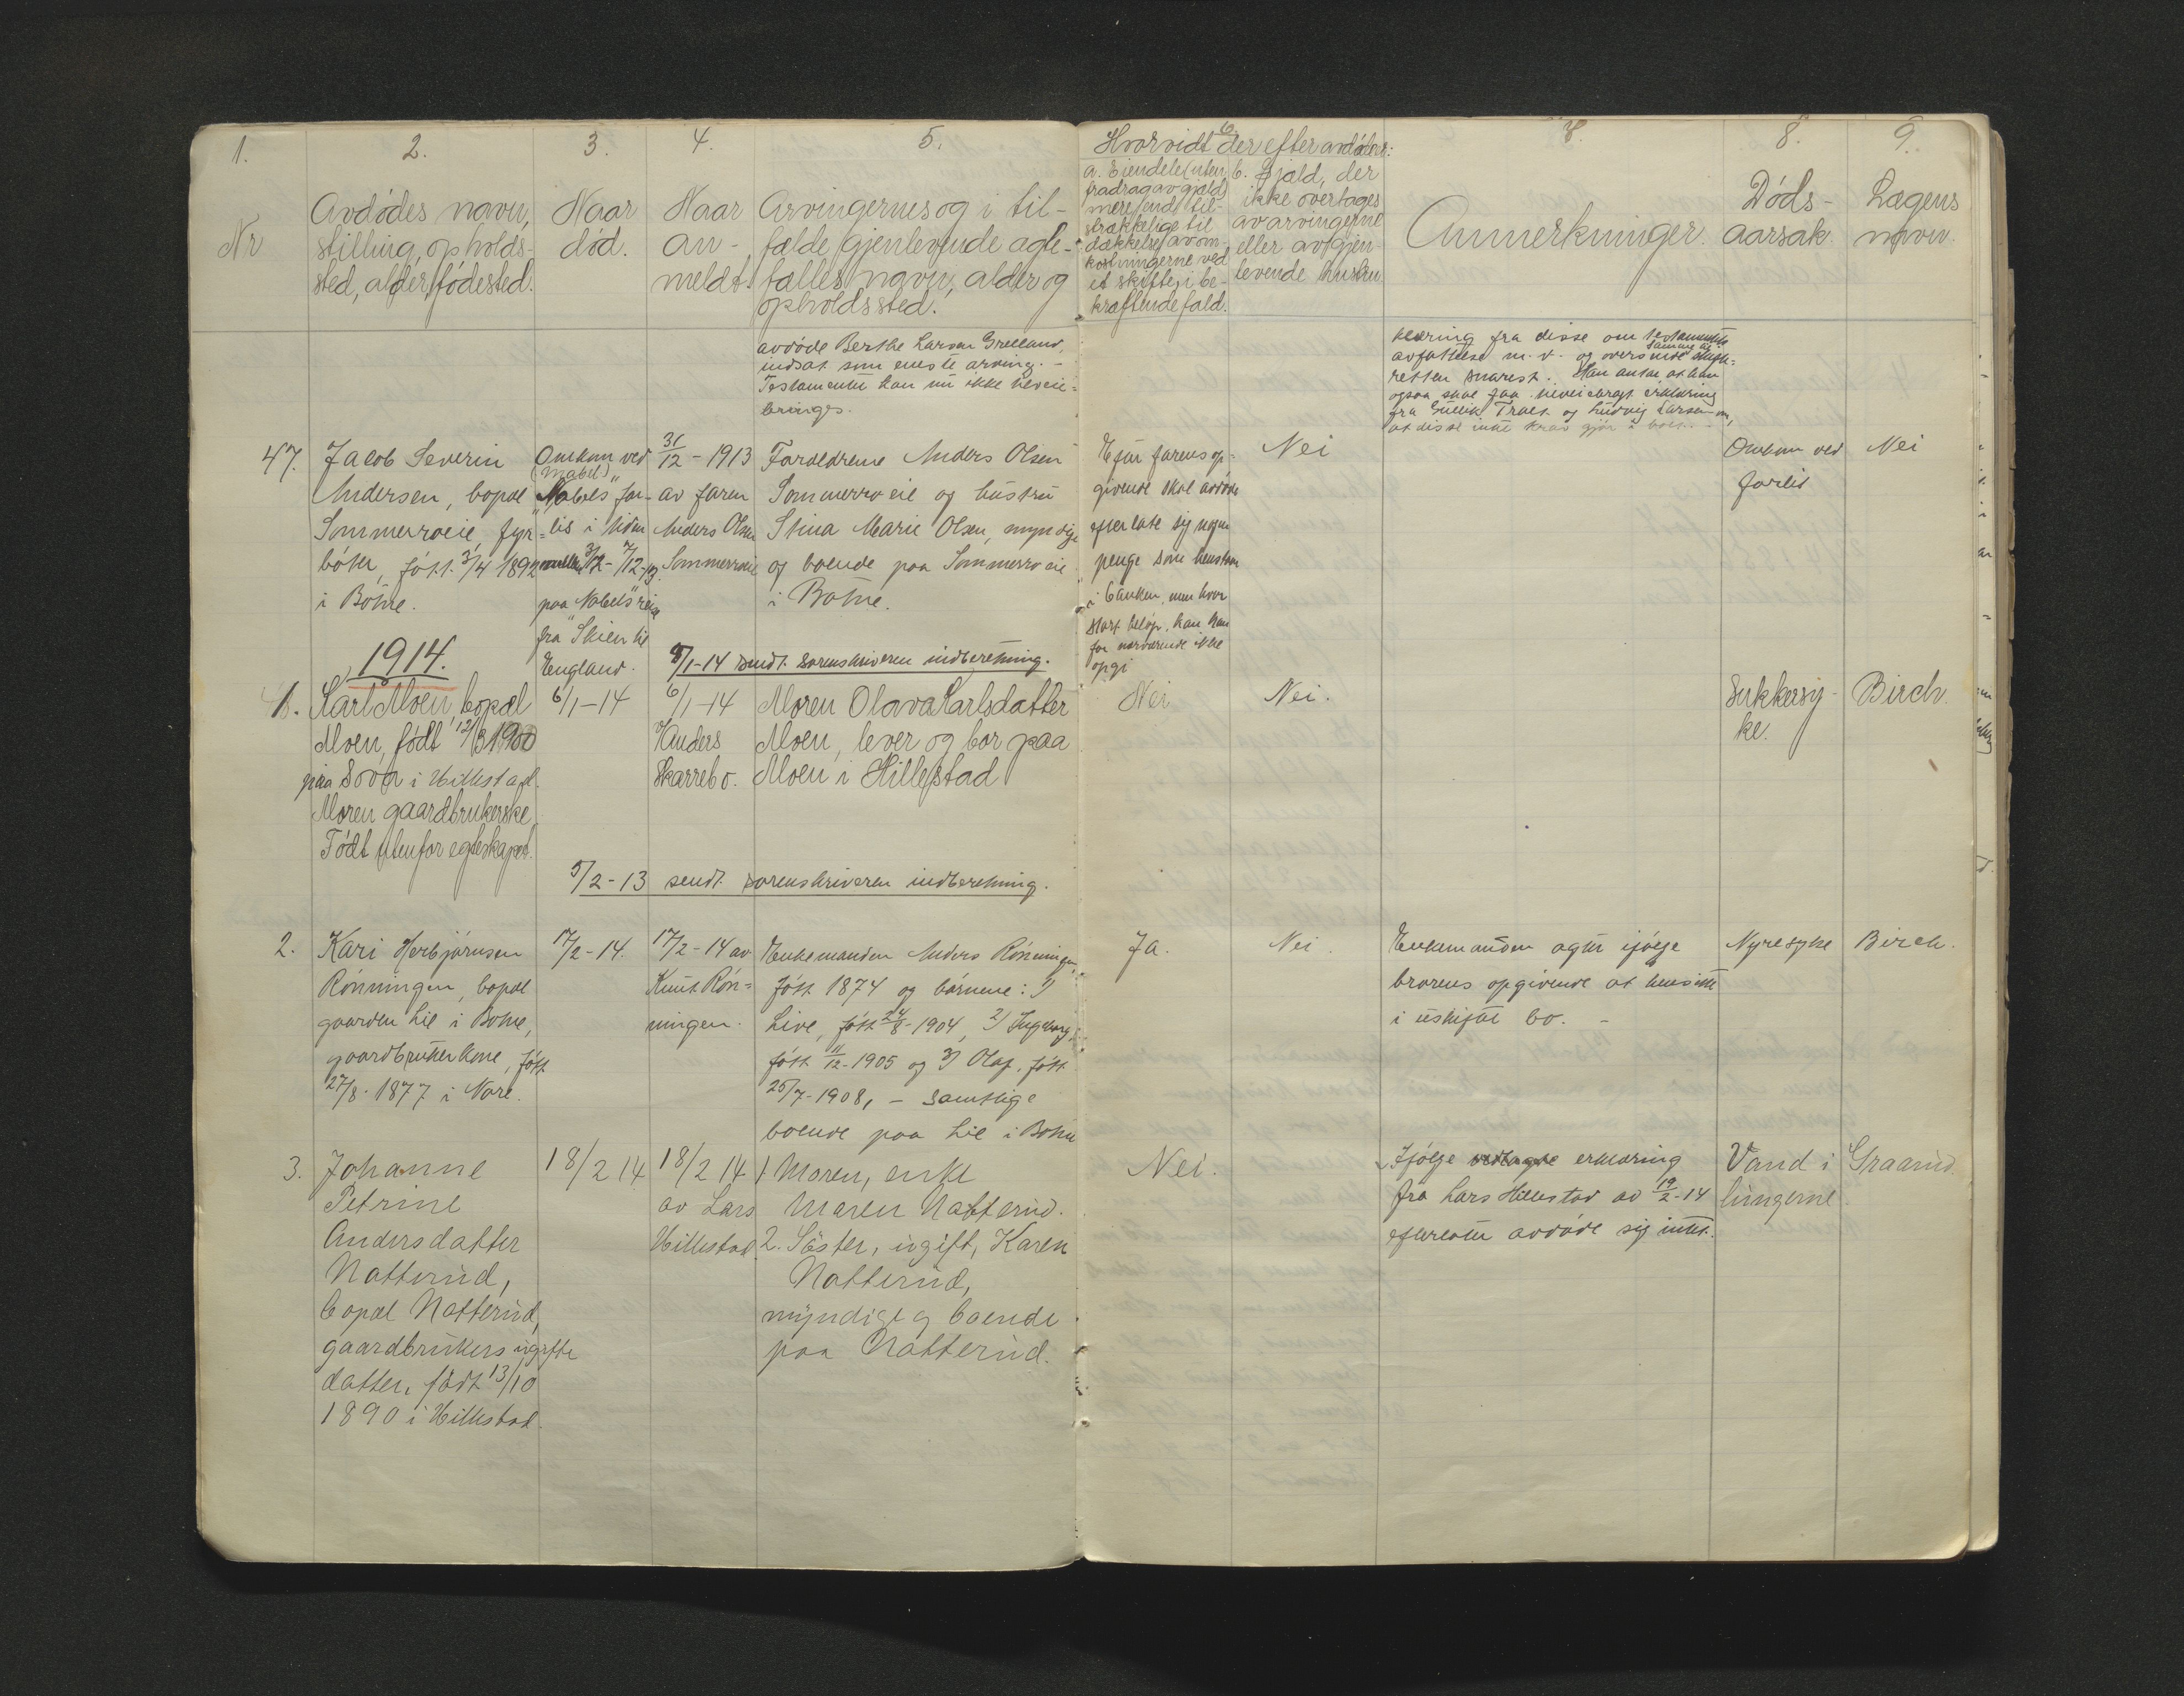 1.
2.
3.
4.
5.
6.
8.
9.
Nr
Avdødes navn,
stilling, opholds-
sted, alder, fødested.
Naar
død.
Naar
an-
meldt.
Arvingernes og i til-
fælde gjenlevende ægte-
fælles navn, alder og
opholdssted.
Hvorvidt der efter avdøde er:
a. Eiendele (uten
fradrag av gjæld)
mere end til-
strækkelige til
dækkelse av om-
kostningerne ved
et skifte, i be-
kræftende fald.
b. Gjæld, der
ikke overtages
av arvingerne
eller av gjen-
levende hustru
Anmerkninger.
Døds-
aarsak.
Lægens
navn.
avdøde Berthe Larsen Grelland,
indsat som eneste arving. -
Testamentet kan nu ikke tilveie-
bringes.
klæring fra disse om testamentets
avfattelse m.v. og oversende samme til skifte-
retten snarest. Han antar at han
ogsaa skal faa tilveiebragt erklæring
fra Gullik Traet og Ludvig Larsen om,
at disse intet krav gjør i boet.
47.
Jacob Severin
Andersen, bopæl
Sommerroeie, fyr-
bøter, født 3/4 1892
i Botne.
Omkom ved
(Mabel)
"Nobels" for-
lis i tiden
mellem 3/12 - 7/12-13.
paa "Nobels" reise
fra Skien til
England.
31/12 - 1913
av faren
Anders Olsen
Sommerroeie
Forældrene Anders Olsen
Sommerroeie og hustru
Stina Marie Olsen, myndige
og boende paa Sommerroeie
i Botne.
Efter farens op-
givende skal avdøde
efterlate sig nogen
penge som henstaar
i banken, men hvor
stort beløp, kan han
for nærværende ikke
opgi
Nei
Omkom ved
forlis
Nei
8/1-14 sendt sorenskriveren indberetning.
1914.
1.
Karl Moen, bopæl
Moen, født 12/3 1900
paa Sova i Hillestad.
Moren gaardbrukerske.
Født utenfor egteskapet.
6/1-14
6/1-14
H. Anders
Skarrebo.
Moren Olava Karlsdatter
Moen, lever og bor paa
Moen i Hillestad
Nei
Nei.
Sukkersy-
ke.
Birch.
5/2-13 sendt sorenskriveren indberetning.
2.
Kari Herbjørnsen
Rønningen, bopæl
gaarden Lie i Botne,
gaardbrukerkone, født
27/8-1877 i Nore.
17/2-14.
17/2-14 av
Knut Røn-
ningen.
Enkemanden Anders Rønningen,
født 1874 og børnene: 1)
Live, født 24/8-1904, 2) Ingeborg,
født 11/12-1905 og 3) Olaf, født
25/7-1908, - samtlige
boende paa Lie i Botne
Ja.
Nei.
Enkemanden agter ifølge
brorens opgivende at hensitte
i uskiftet bo. -
Nyresyke
Birch.
3.
Johanne
Petrine
Andersdatter
Natterud,
bopæl Natterud,
gaardbrukers ugifte
datter, født 13/10
1890 i Hillestad.
18/2 14
18/2 14
av Lars
Hillestad
1 Moren, enke
Maren Natterud.
2. Søster, ugift, Karen
Natterud,
myndige og boende
paa Natterud.
Nei.
Ifølge vedlagte erklæring
fra Lars Hillestad av 19/2-14
efterlater avdøde sig intet.
Vand i
lungerne
Graarud.